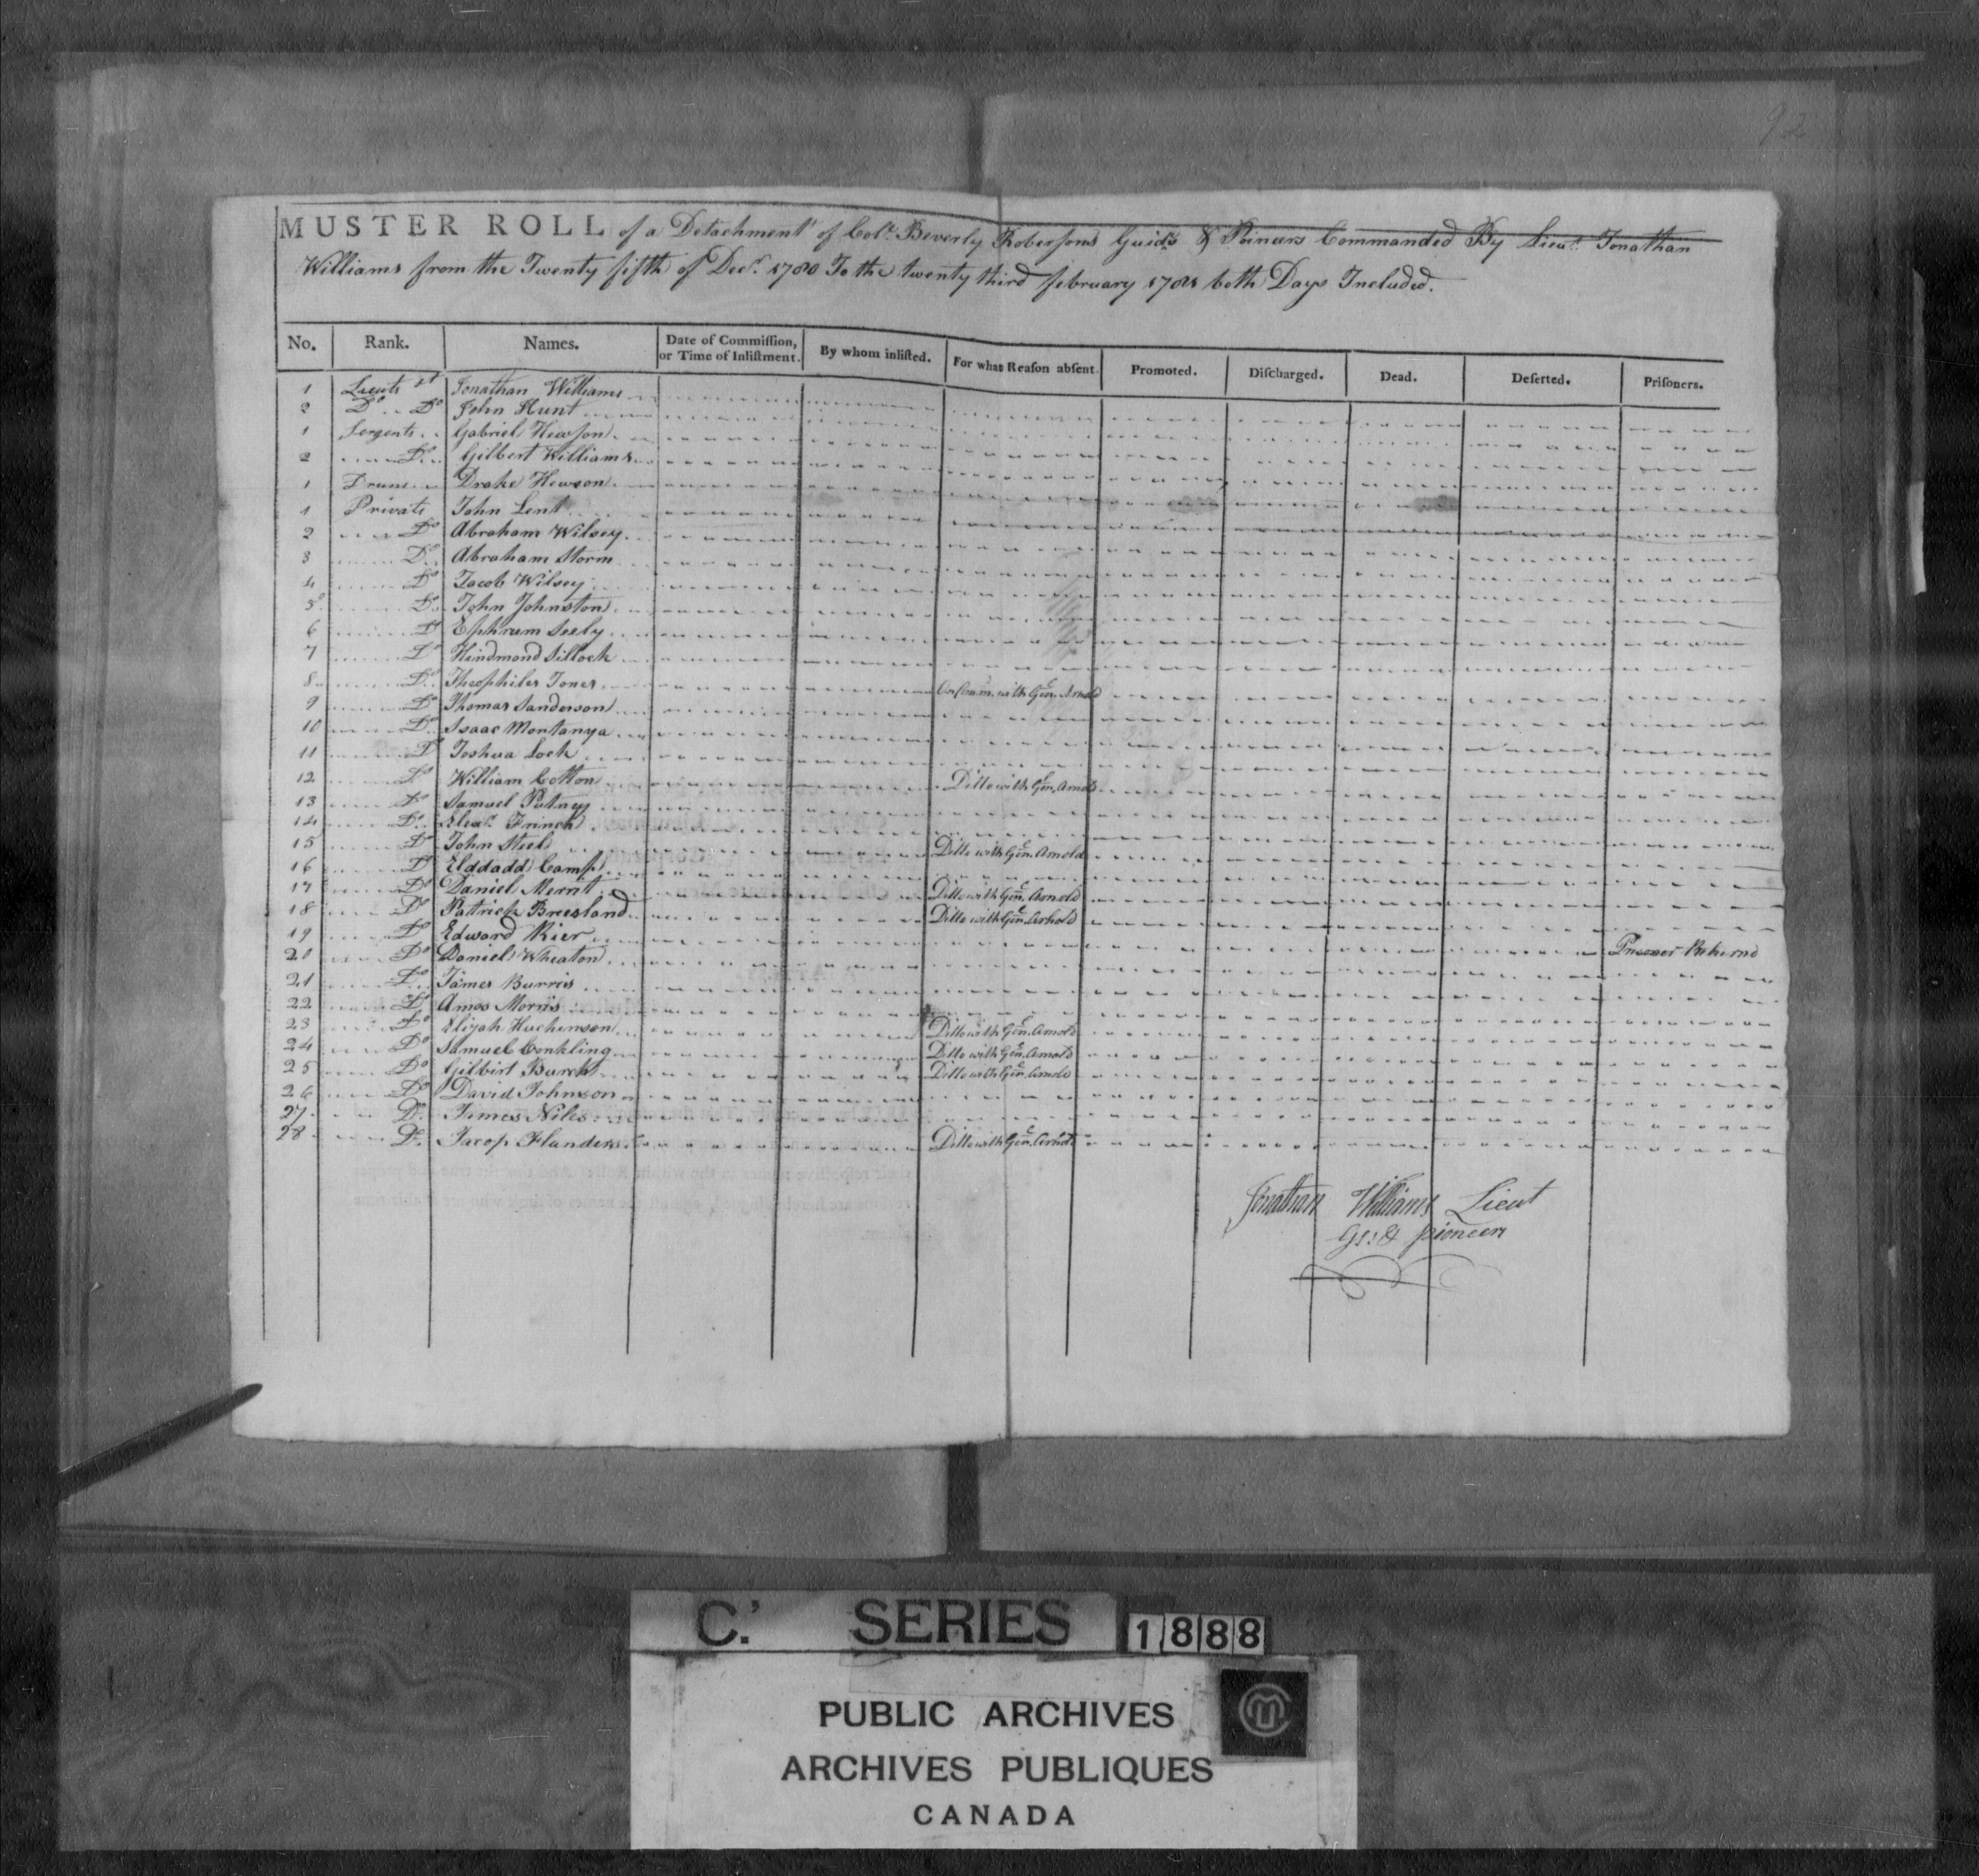 92
MUSTER ROLL of a Detachment of Colo. Beverly Robersons Guid's & Poineers Commanded By Lieut. Jonathan
Williams from the Twenty fifth of Decr. 1780 To the twenty third february 1781 both Days Included.
No. Rank. Names. Date of Commission, or Time of Inlistment. By whom inlisted. For what Reason absent. Promoted. Discharged. Dead. Deserted. Prisoners.
1 Lieuts 1t Jonathan Williams
2 Do. Do John Hunt
1 Sergents Gabriel Hewson
2 Do. Gilbert Williams
1 Drum Drake Hewson
1 Private John Lent
2 Do Abraham Wilsey
3 Do. Abraham Storm
4 Do Jacob Wilsey
5 Do. John Johnston
6 Do Ephrum Seely
7 Do Hindmond Sillock
8 Do. Theophiles Jones On Comm. with Genl. Arnold
9 Do Thomas Sanderson
10 Do. Isaac Montanya
11 Do Joshua Lock
12 Do William Cotton Ditto with Genl. Arnold
13 Do Samuel Putney
14 Do. Alexr. French
15 Do John Steel Ditto with Genl. Arnold
16 Do Elddadd Camp
17 Do Daniel Merrit Ditto with Genl. Arnold
18 Do Patrick Breesland Ditto with Genl. Arnold
19 Do Edward Rier
20 Do Daniel Wheaton Prisoner
21 Do. James Burris
22 Do Amos Morris
23 Do Elijah Huchinson Ditto with Genl. Arnold
24 Do Samuel Conkling Ditto with Genl. Arnold
25 Do Gilbirt Burcht Ditto with Genl. Arnold
26 Do David Johnson
27 Do. James Niles
28 Do. Jacop Flanders Ditto with Genl. Arnold
Jonathan Williams Lieut
Gs: & pioneers
C.' SERIES 1888
PUBLIC ARCHIVES
ARCHIVES PUBLIQUES
CANADA